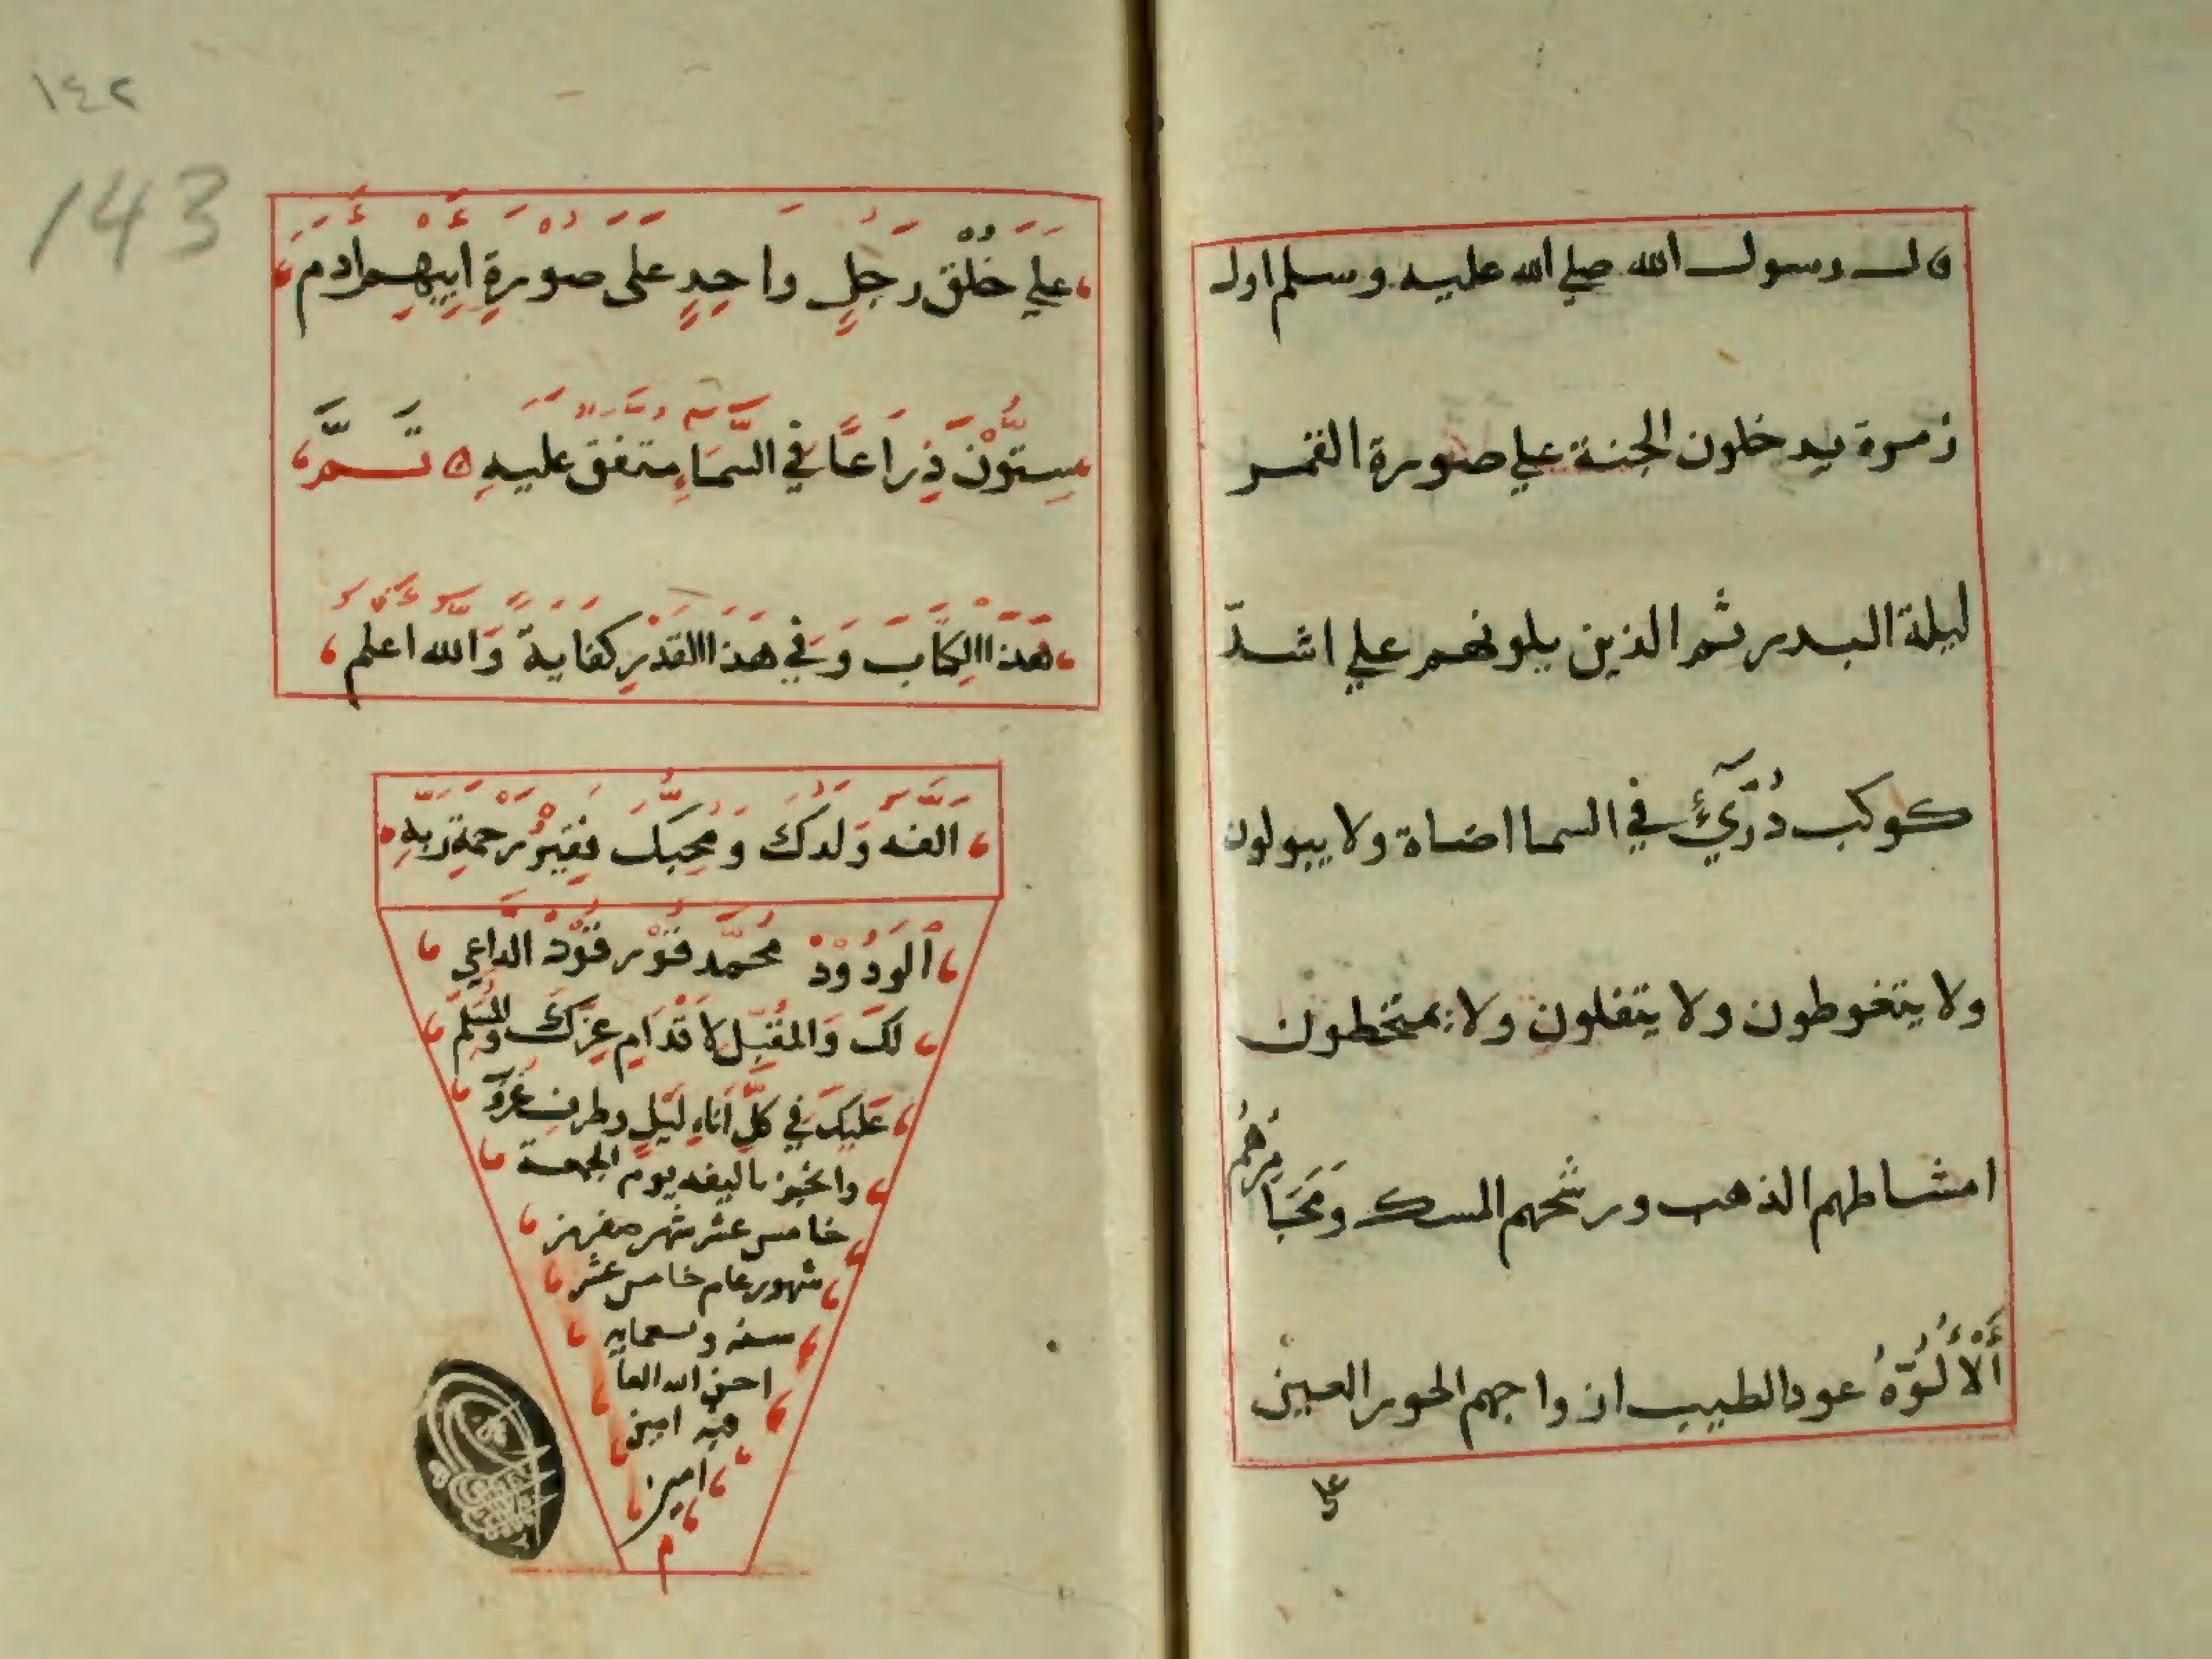 قال رسول الله صلي الله عليه وسلم اول
زمرة يدخلون الجنة علي صورة القمر
ليلة البدر ثم الذين يلونهم علي اشدّ
كوكب دُرّيٍّ في السما اضاة ولا يبولون
ولا يتغوطون ولا يتفلون ولا يمتخطون
امشاطهم الذهب ورشحهم المسك ومَجَامِرُهُم
أَلْأَلُوَّةُ عود الطيب ازواجهم الحور العين
علي
١٤٢
143
عَلَي خُلْقِ رَجُلٍ وَاحِدٍ عَلَى صُوْرَةِ أَبِيْهِم أَدم
سِتُّوْنَ ذِرَاعًا في السَّمَاءِ متفق عليهِ ۞ تَـــمَّ
هَذَا الْكِتَاب وَفي هَذَا القَدْرِ كفاية وَالله اعلم
الفه وَلدك وَمُحِبُّكَ فَقِيْرُ رَحْمَةِ رَبِّهِ
اَلْوَدُوْدْ مُحَمَّد قَوْر قُوْدْ الداعي
لكَ وَالمُقَبِّل لاَقْدَام عِزِّكَ وَالمُسَلِّم
عَلَيْكَ في كُلِّ أَنَاءِ لَيْلٍ وطرف
يوم الجمعة
خامس عشر شهر صفر من
شهور عام خامس عشر
سنه وتسعمايه
احسن الله
فيه امين
امين
م